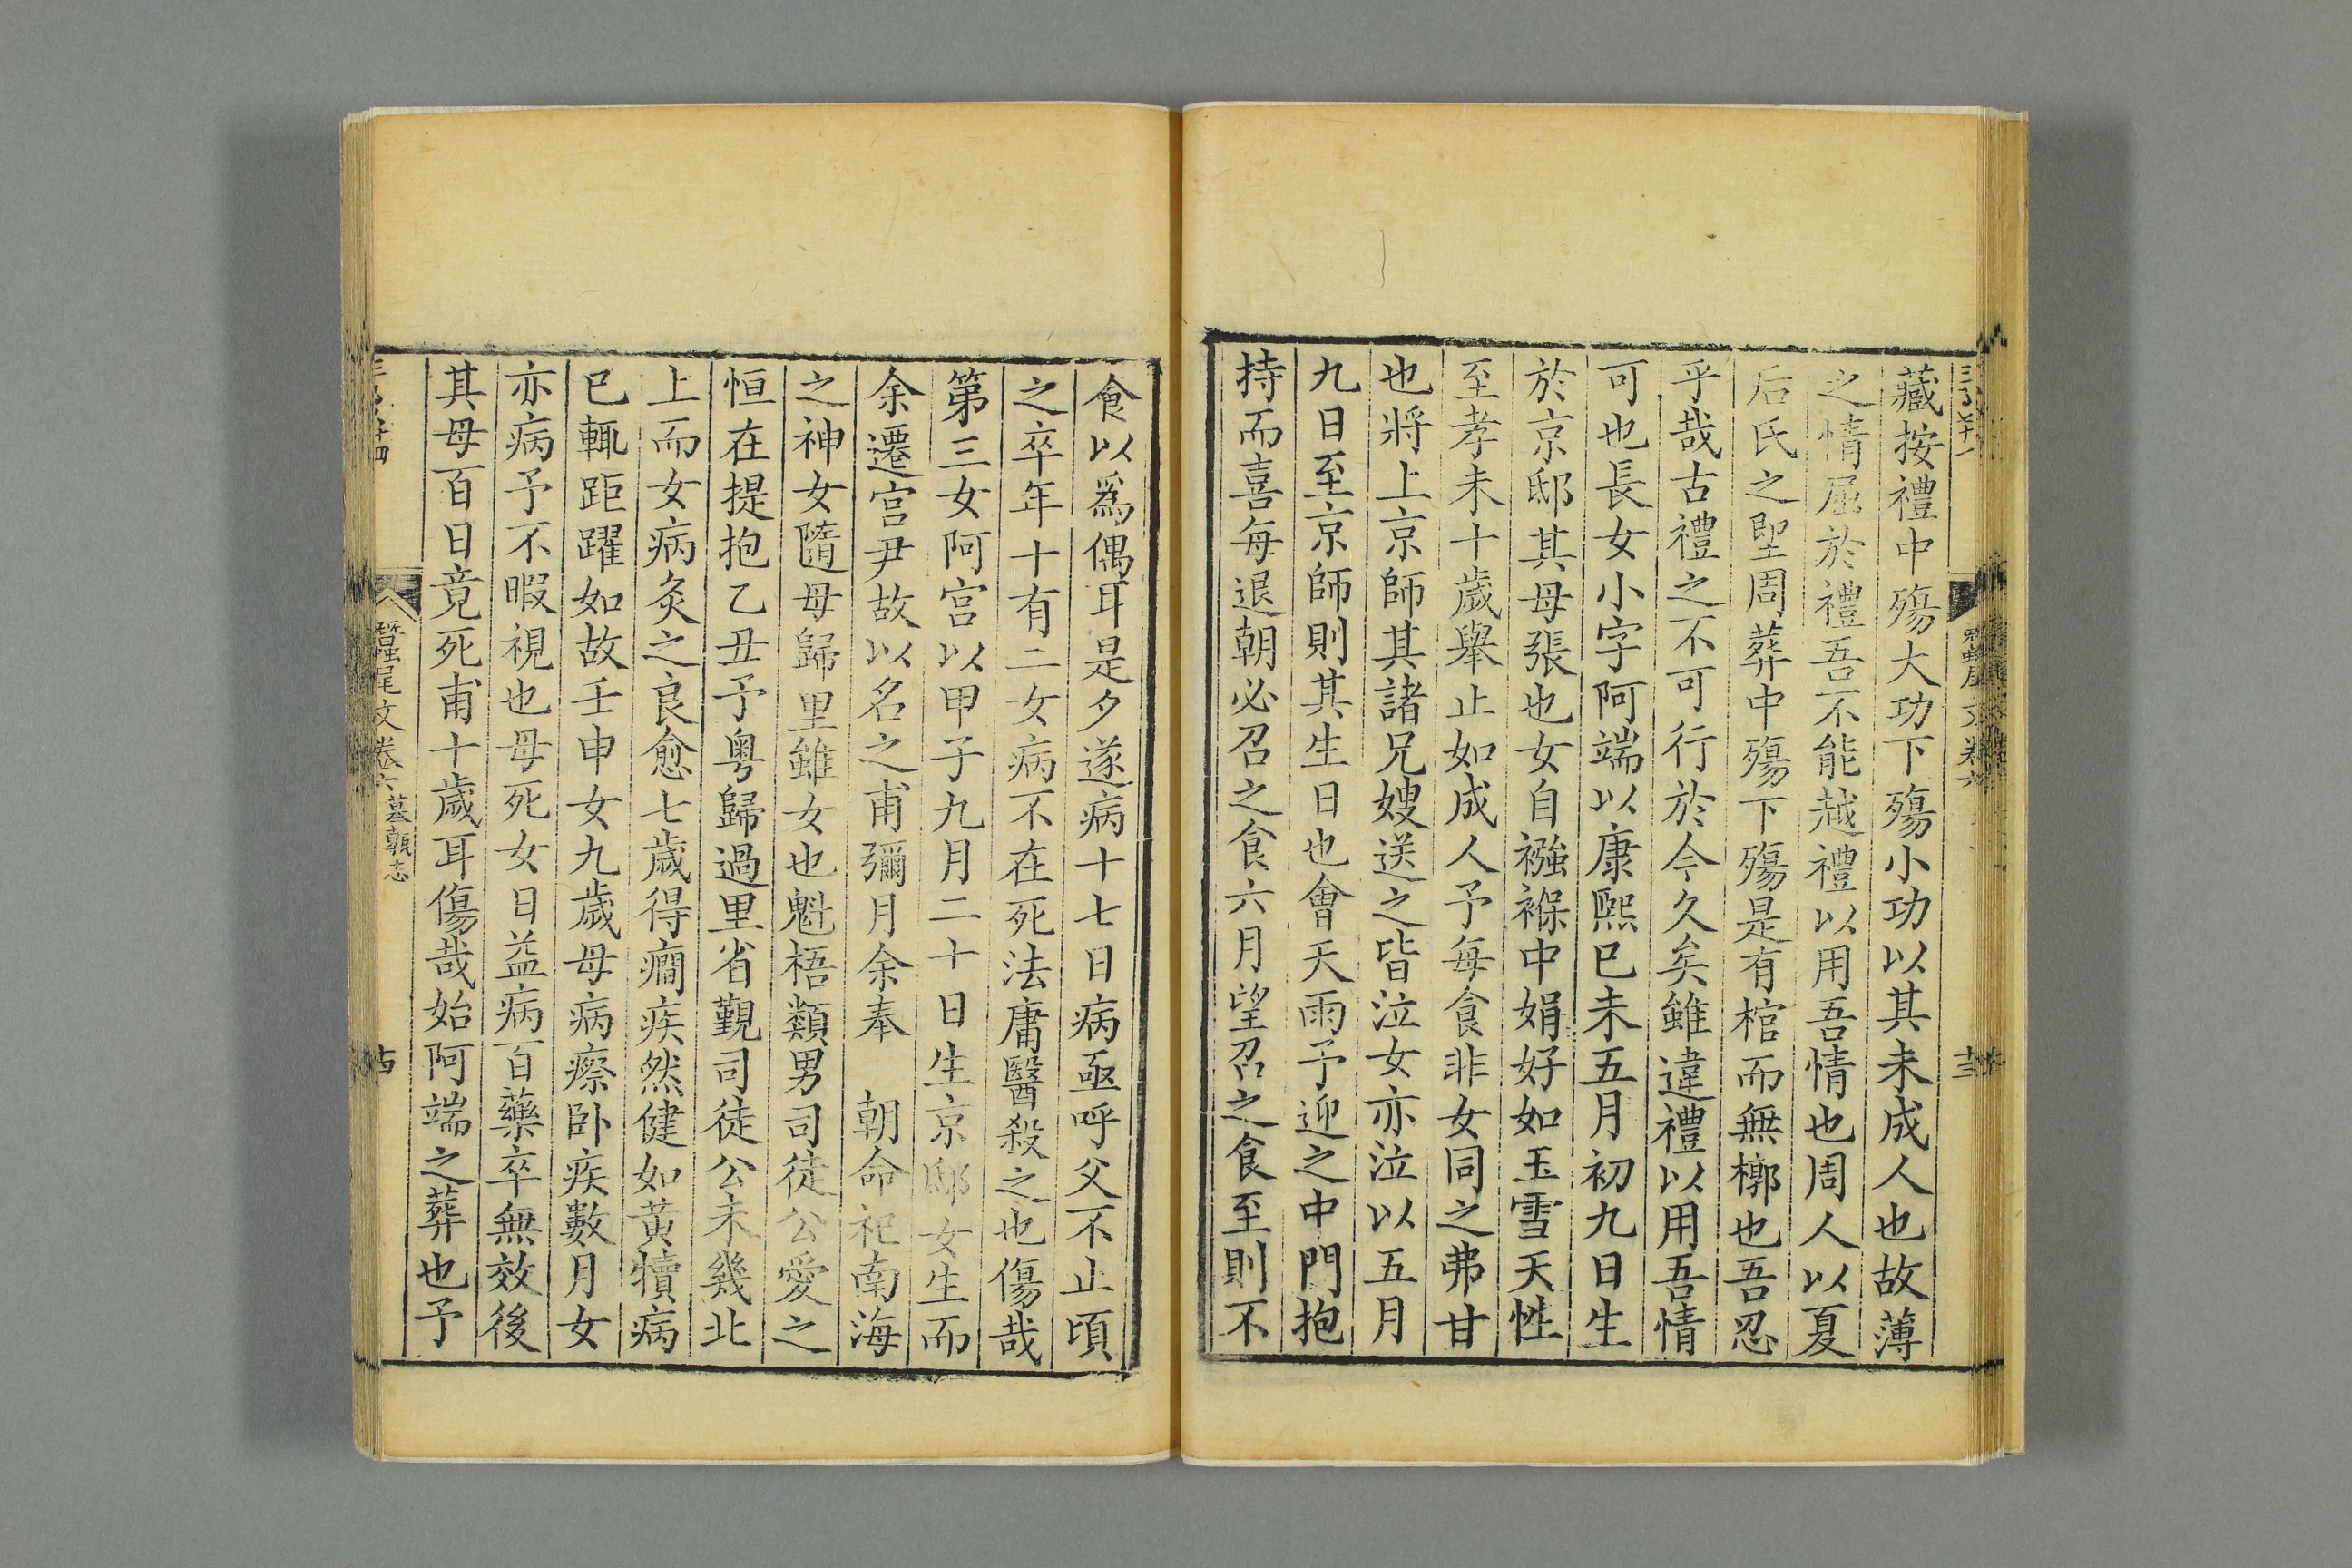 藏按禮中殤大功下殤小功以其未成人也故薄
之情屈於禮吾不能越禮以用吾情也周人以夏
后氏之堲周葬中殤下殤是有棺而無槨也吾忍
乎哉古禮之不可行於今久矣雖違禮以用吾情
可也長女小字阿端以康熙已未五月初九日生
於京邸其母張也女自襁褓中娟好如玉雪天性
至孝未十歲舉止如成人予每食非女同之弗甘
也將上京師其諸兄嫂送之皆泣女亦泣以五月
九日至京師則其生日也會天雨予迎之中門抱
持而喜每退朝必召之食六月望召之食至則不
食以爲偶耳是夕遂病十七日病亟呼父不止頃
之卒年十有二女病不在死法庸醫殺之也傷哉
第三女阿宮以甲子九月二十日生京邸女生而
余遷宮尹故以名之甫彌月余奉 朝命祀南海
之神女隨母歸里雖女也魁梧類男司徒公愛之
恒在提抱乙丑予粤歸過里省覲司徒公未幾北
上而女病灸之良愈七歲得癎疾然健如黃犢病
已輒距躍如故壬申女九歲母病瘵卧疾數月女
亦病予不暇視也母死女日益病百藥卒無效後
其母百日竟死甫十歲耳傷哉始阿端之葬也予
蠶尾文卷六 墓甎志